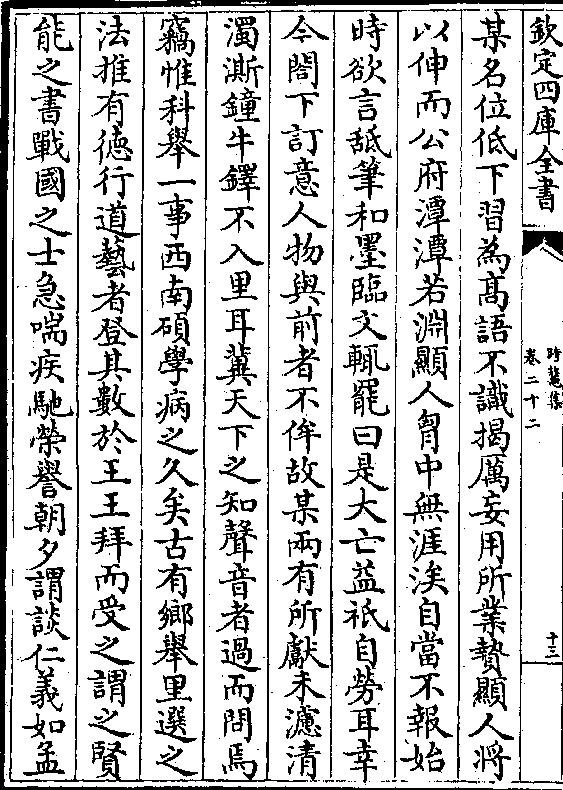 欽定四庫全書
時齋集
卷二十二
十三
某名位低下習為髙語不識揭厲妄用所業贄顯人將
以伸而公府潭潭若淵顯人胷中無涯涘自當不報始
時欲言舐筆和墨臨文輒罷曰是大亡益祇自勞耳幸
今閤下訂意人物與前者不侔故某兩有所獻未濾清
濁澌鐘牛鐸不入里耳冀天下之知聲音者過而問焉
竊惟科舉一事西南碩學病之久矣古有鄉舉里選之
法推有徳行道藝者登其數於王王拜而受之謂之賢
能之書戰國之士急喘疾馳榮譽朝夕謂談仁義如孟